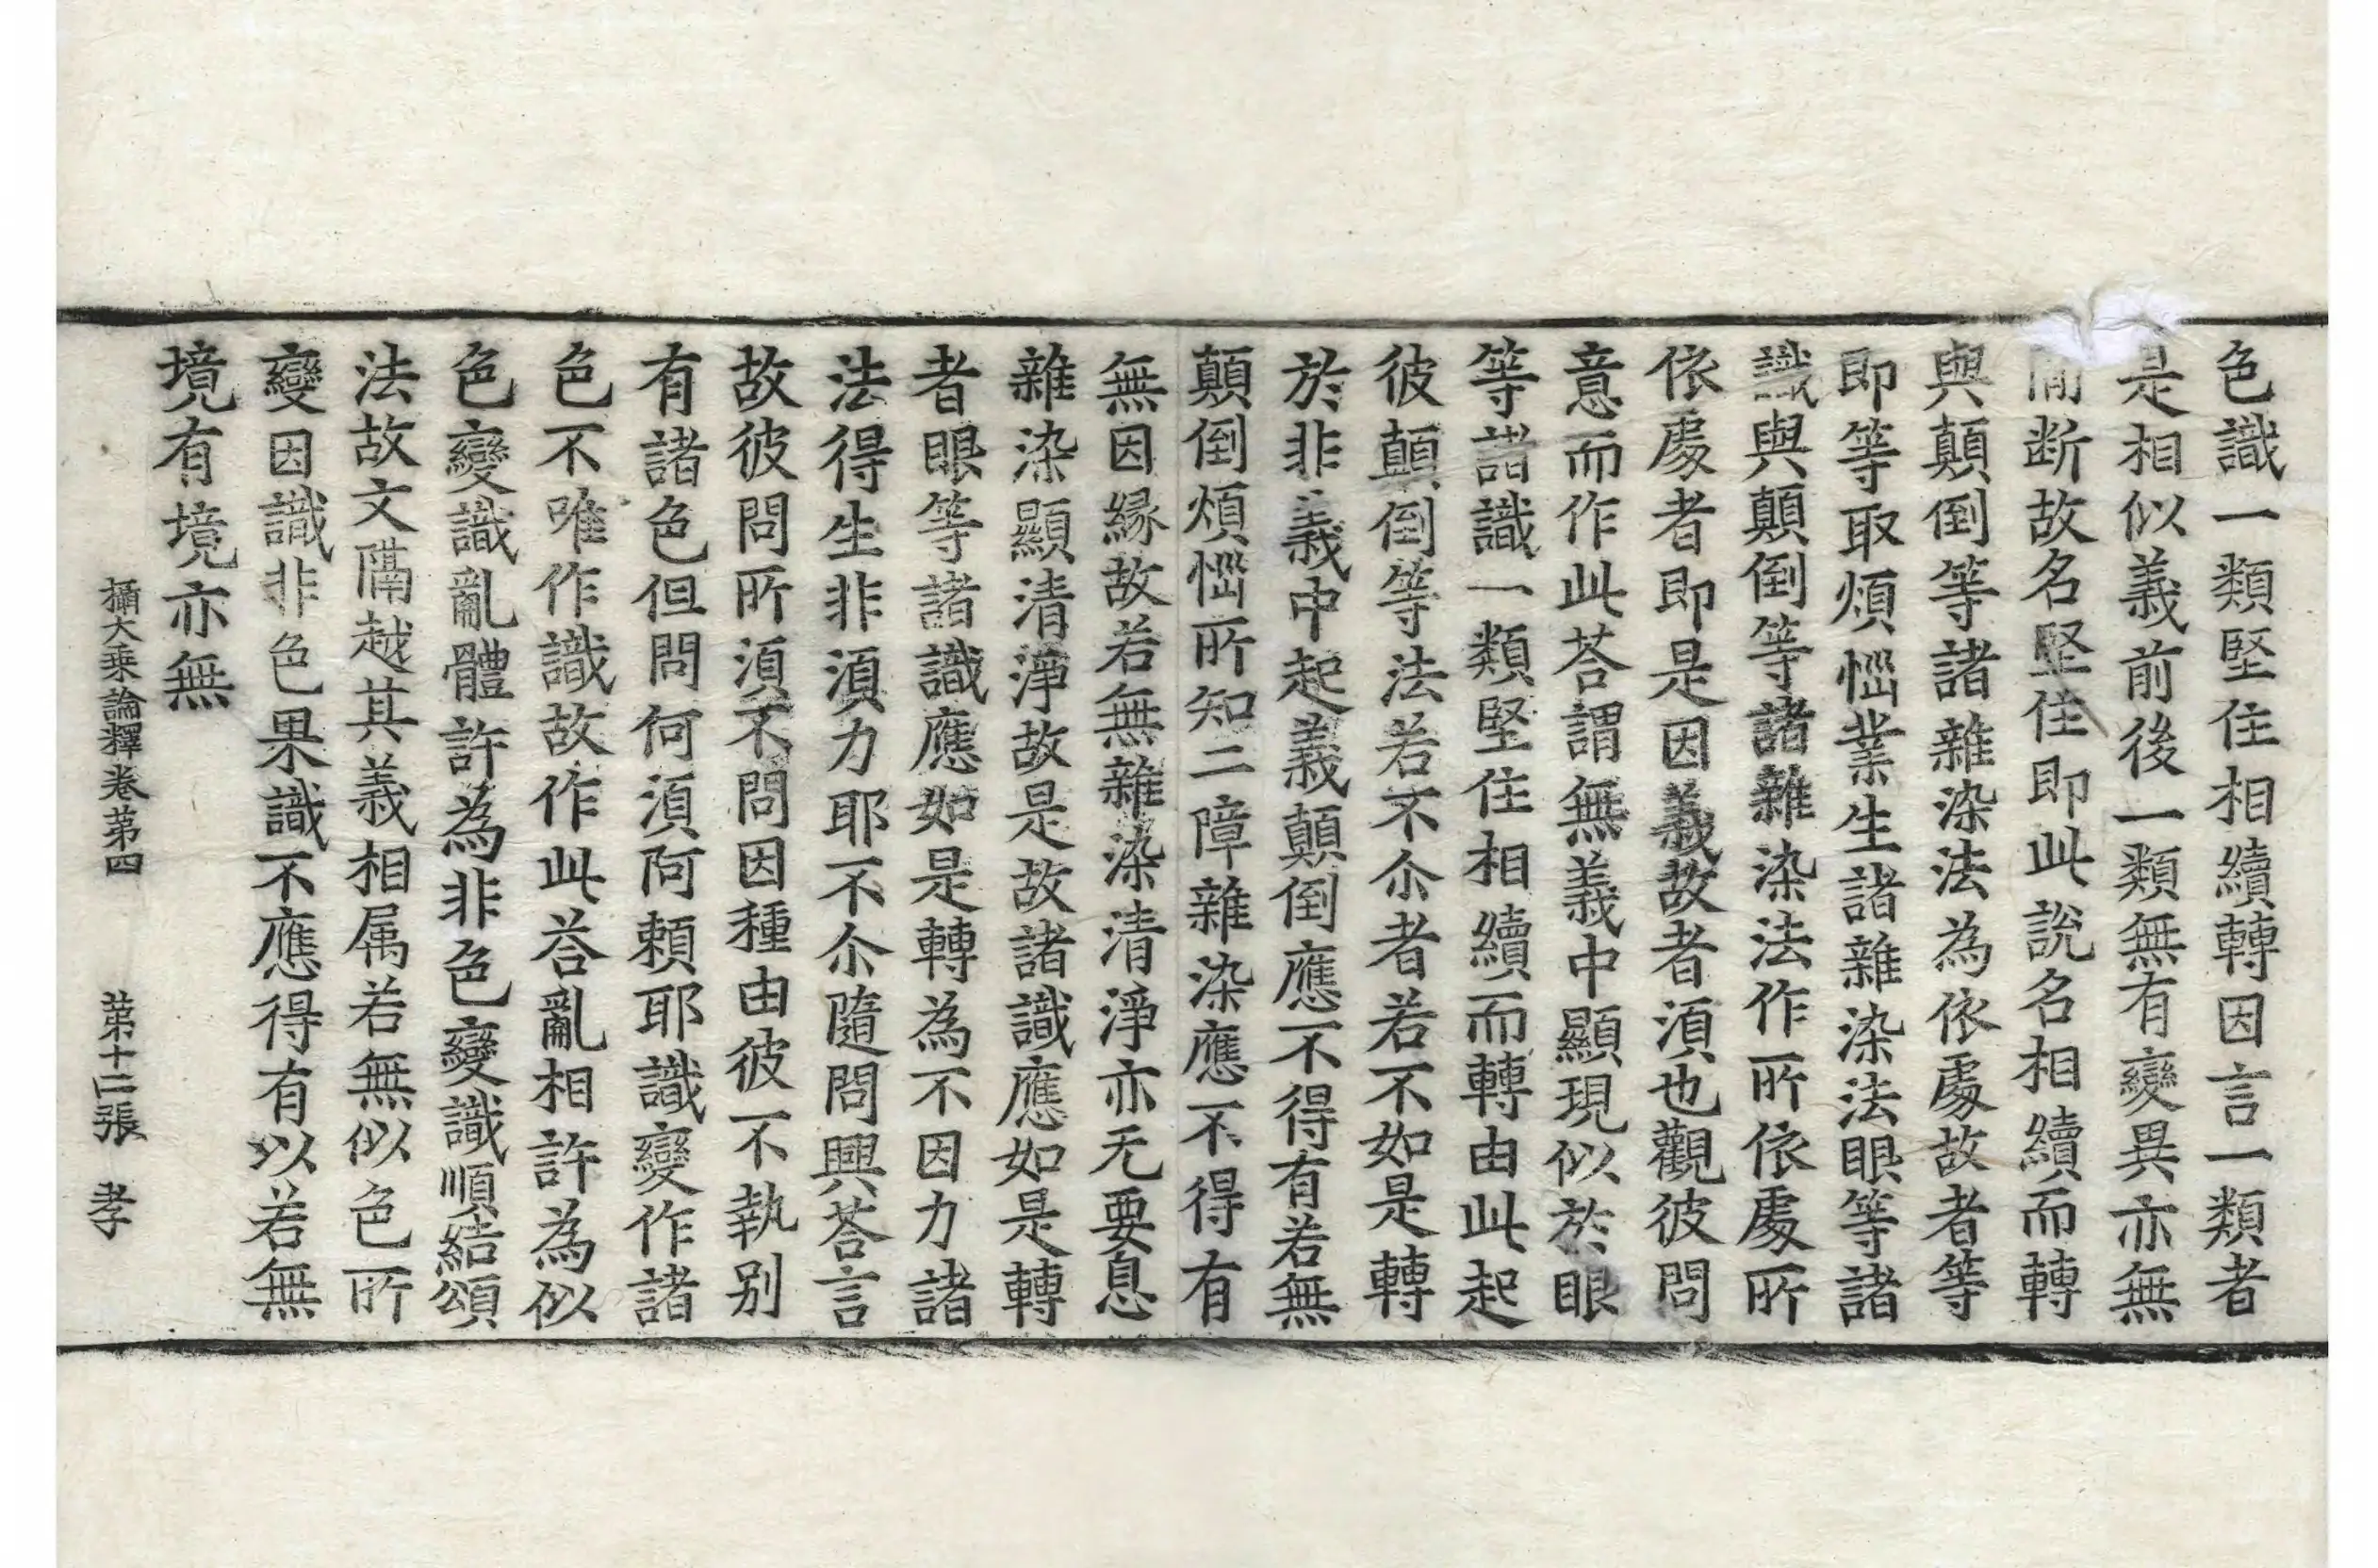 色識一類堅住相續轉因言一類者
是相似義前後一類無有變異亦無
間断故名堅住即此說名相續而轉
與顛倒等諸雜染法為依處故者等
即等取煩惱業生諸雜染法眼等諸
識與顛倒等諸雜染法作所依處所
依處者即是因義故者湏也觀彼問
意而作此荅謂無義中顯現似於眼
等諸識一類堅住相續而轉由此起
彼顛倒等法若不尒者若不如是轉
於非義中起義顛倒應不得有若無
顛倒煩惱所知二障雜染應不得有
無因緣故若無雜染清淨亦无要息
雜染顯清淨故是故諸識應如是轉
者眼等諸識應如是轉為不因力諸
法得生非湏力耶不尒隨問興荅言
故彼問所湏不問因種由彼不執别
有諸色但問何湏阿賴耶識變作諸
色不唯作識故作此荅亂相許為似
色變識亂體許為非色變識順結頌
法故文隔越其義相属若無似色所
變因識非色果識不應得有以若無
境有境亦無
攝大乘論釋卷第四 第十二張 孝